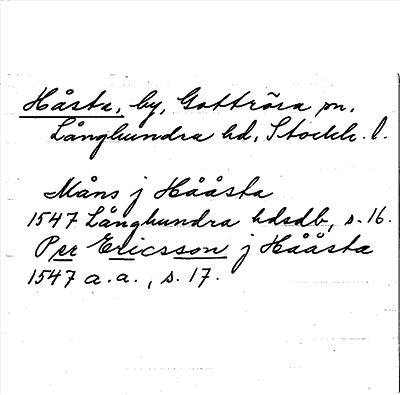 Håsta, by, Gottröra sn,
Långhundra hd, Stockh. l.
Måns j Hååsta
1547 Långhundra hdsdb, s. 16.
Per Ericsson j Hååsta
1547 a. a., s. 17.